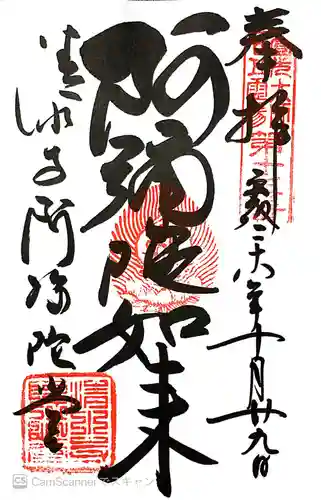 奉拝
平成二十八年十月廿九日
阿弥陀如来
清水寺阿弥陀堂
CamScannerでスキャン